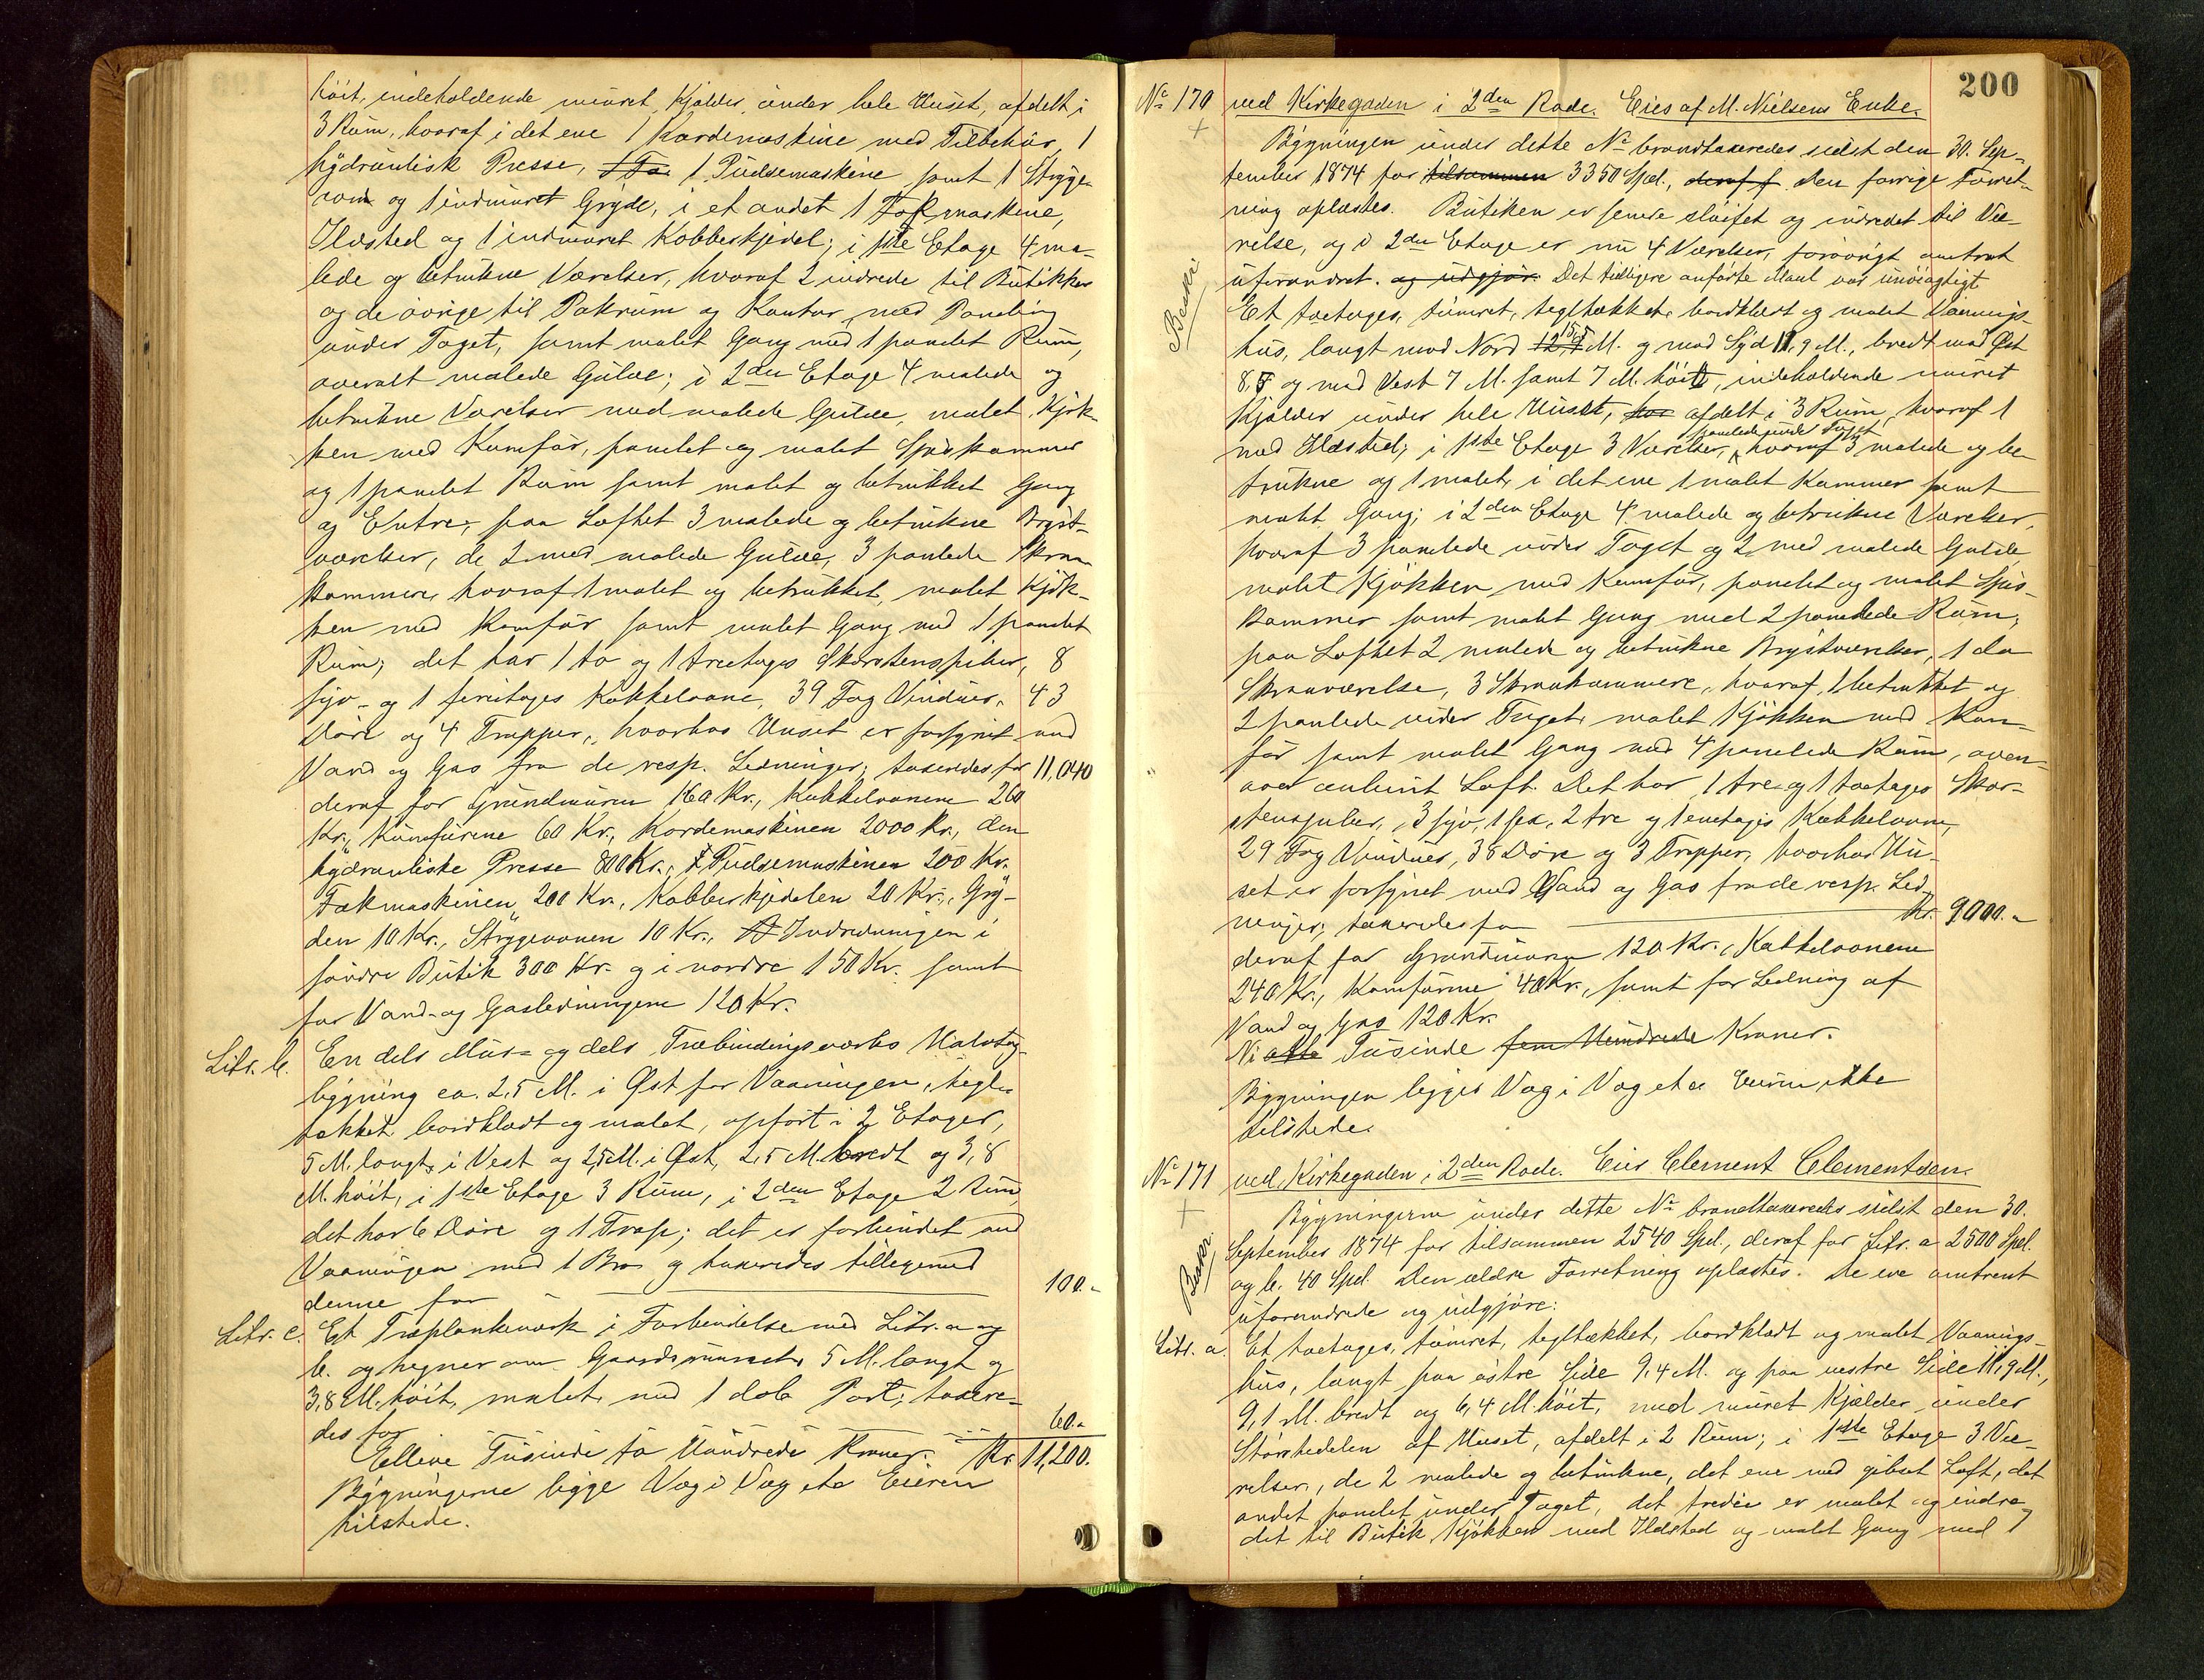 höit, indeholdende muret Kjælder under hele Huset, afdelt i
3 Rum, hvoraf i det ene 1 Kardemaskine med Tilbehör, 1
hydraulisk Presse, 1 To 1 Pudsemaskine samt 1 Stryge-
rom og 1 indmuret Gryde, i et andet 1 Tøkmaskine,
Ildsted og 1 indmuret Kobberkjedel; i 1ste Etage 4 ma-
lede og betrukne Værelser, hvoraf 2 indrede til Butikker
og de övrige til Pakrum og Kontor med Paneling
under Taget, samt malet Gang med 1 panelet Rum,
overalt malede Gulve; i 2den Etage 4 malede og
betrukne Værelser med malede Gulve, malet Kjök-
ken med Komfür, panelet og malet Spiskammer
og 1 panelet Rum samt malet og betrukket Gang
og Entre; paa Loftet 3 malede og betrukne Bryst-
værelser, de 2 med malede Gulve, 3 panlede Skraa-
kammere, hvoraf 1 malet og betrukket, malet Kjök-
ken med Komfür samt malet Gang med 1 panelet
Rum; det har 1 to og 1 treetages Skorstenspiber, 8
syv- og 1 fireetages Kakkelovne, 39 Fag Vinduer, 43
Döre og 4 Trapper, hvorhos Huset er forsynet med
Vand og Gas fra de resp. Ledninger; taxeredes for 11,040
deraf for Grundmuren 160 Kr., Kakkelovnene 260
Kr., Komfürene 60 Kr., Kardemaskinen 2000 Kr., den
hydrauliske Presse 800 Kr., Pudsemaskinen 200 Kr.
Tøkmaskinen 200 Kr., Kobberkjedelen 20 Kr., Gry-
den 10 Kr., Strygeovnen 10 Kr., Indredningen i
söndre Butik 300 Kr. og i nordre 150 Kr. samt
for Vand- og Gasledningerne 120 Kr.
Litr. b. En dels Mur- og dels Træbindingsværks Halvtag-
bygning ca. 2,5 M. i Øst for Vaaningen, tegl-
tækket, bordklædt og malet, opført i 2 Etager,
5 M. langt i Vest og 2,5 M. i Øst, 2,5 M. bredt og 3,8
M. höit, i 1ste Etage 3 Rum, i 2den Etage 2 Rum
det har 6 Döre og 1 Trap; det er forbundet med
Vaaningen med 1 Bro og taxeredes tilligemed
denne for 100.-
Litr. c. Et Træplankeværk i Forbindelse med Litr. a og
b. og hegner om Gaardsrummet, 5 M. langt og
3,8 M. höit, malet, med 1 dob. Port; taxere-
des for 60.-
Elleve Tusinde to Hundrede Kroner. Kr. 11,200.
Bygningerne ligge Væg i Væg etc Eieren
tilstede.
200
No 170 ved Kirkegaden i 2den Rode. Eies af M. Nielsens Enke.
Bygningen under dette No brandtaxeredes sidst den 30. Sep-
tember 1874 for tilsammen 3350 Spd., deraf f den forrige Forret-
ning oplæstes. Butiken er senere slöifet og indredet til Væ-
relse, og i 2den Etage er nu 4 Værelser, forövrigt omtrent
uforandret. og udgjör: Det tidligere anförte Maal var unöiagtigt
Beskr.
Et toetages, tömret, tegltækket, bordklædt og malet Vaanings-
hus, langt mod Nord 12,1 15,5 M. og mod Syd 11,9 M., bredt mod Øst
8,5 og mod Vest 7 M. samt 7 M. höit, indeholdende muret
Kjælder under hele Huset, hvo afdelt i 3 Rum, hvoraf 1
med Ildsted; i 1ste Etage 3 Værelser, panelede under Taget hvoraf 3 malede og be-
trukne og 1 malet, i det ene 1 malet Kammer samt
malet Gang; i 2den Etage 4 malede og betrukne Værelser,
hvoraf 3 panelede under Taget og 2 med malede Gulve,
malet Kjökken med Komfür, panelet og malet Spis-
kammer samt malet Gang med 2 panelede Rum;
paa Loftet 2 malede og betrukne Brystværelser, 1 do
Skraaværelse, 3 Skraakammere, hvoraf 1 betrukket og
2 panlede under Taget, malet Kjökken med Kom-
für samt malet Gang med 4 panelede Rum, oven-
over Loft. Det har 1 tre- og 1 toetages Skor-
stenspiber, 3 syv, 1 sex, 2 tre og 1 enetages Kakkelovne,
29 Fag Vinduer, 38 Döre og 3 Trapper, hvorhos Hu-
set er forsynet med Vand og Gas fra de resp. Led-
ninger; taxeredes for Kr. 9000.-
deraf for Grundmuren 120 Kr., Kakkelovnene
240 Kr., Komfürene 40 Kr., samt for Ledning af
Vand og Gas 120 Kr.
Ni otte Tusinde fem Hundrede Kroner.
Bygningen ligger Væg i Væg etc Eieren ikke
tilstede.
No 171 ved Kirkegaden i 2den Rode. Eier Clement Clementsen.
Bygningerne under dette No brandtaxeredes sidst den 30.
September 1874 for tilsammen 2540 Spd., deraf for Litr. a 2500 Spd.
og b. 40 Spd. Den ældre Forretning oplæstes. De ere omtrent
uforandrede og udgjöre:
Beskr.
Litr. a. Et toetages, tömret, tegltækket, bordklædt og malet Vaanings-
hus, langt paa östre Side 9,4 M. og paa vestre Side 11,9 M.,
9,1 M. bredt og 6,4 M. höit, med muret Kjælder under
Störstedelen af Huset, afdelt i 2 Rum; i 1ste Etage 3 Væ-
relser, de 2 malede og betrukne, det ene med gibset Loft, det
andet panelet under Taget, det tredie er malet og indre-
det til Butik, Kjökken med Ildsted og malet Gang med 1